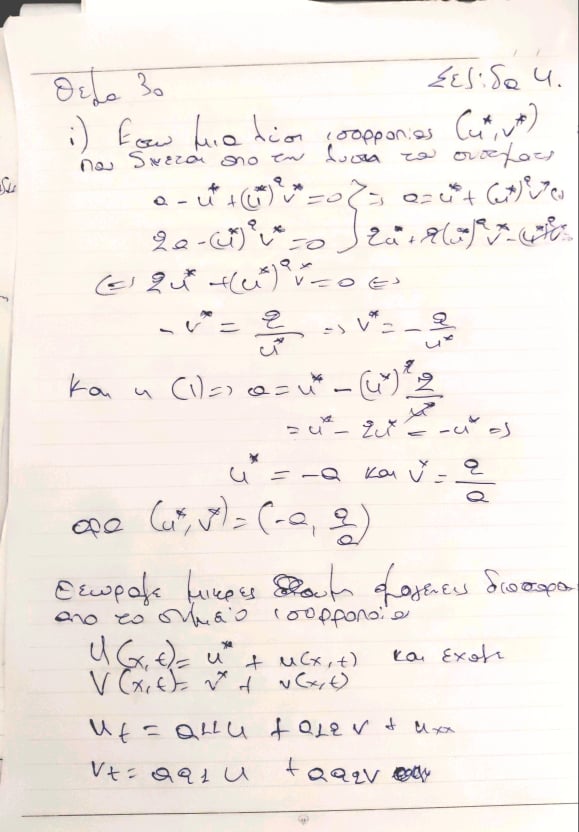 Θεμα 3ο Σελιδα 4.
i) Εστω μια λυση ισορροπιας (u*, v*)
που δινεται απο την λυση του συστηματος
a - u* + (u*)²v* = 0 } => a = u* + (u*)²v*
2a - (u*)²v* = 0 } 2u* + 2(u*)²v* - (u*)²v*
<=> 2u* + (u*)²v* = 0 <=>
- v* = 2/u* => v* = - 2/u*
και η (1) => a = u* - (u*)² 2/u*
= u* - 2u* = -u* =>
u* = -a και v* = 2/a
αρα (u*, v*) = (-a, 2/a)
Θεωρουμε μικρες ομογενεις διαταρα
απο το σημειο ισορροπια
U(x,t) = u* + u(x,t) και εχουμε
V(x,t) = v* + v(x,t)
u_t = a11u + a12v + u_xx
v_t = a21u + a22v